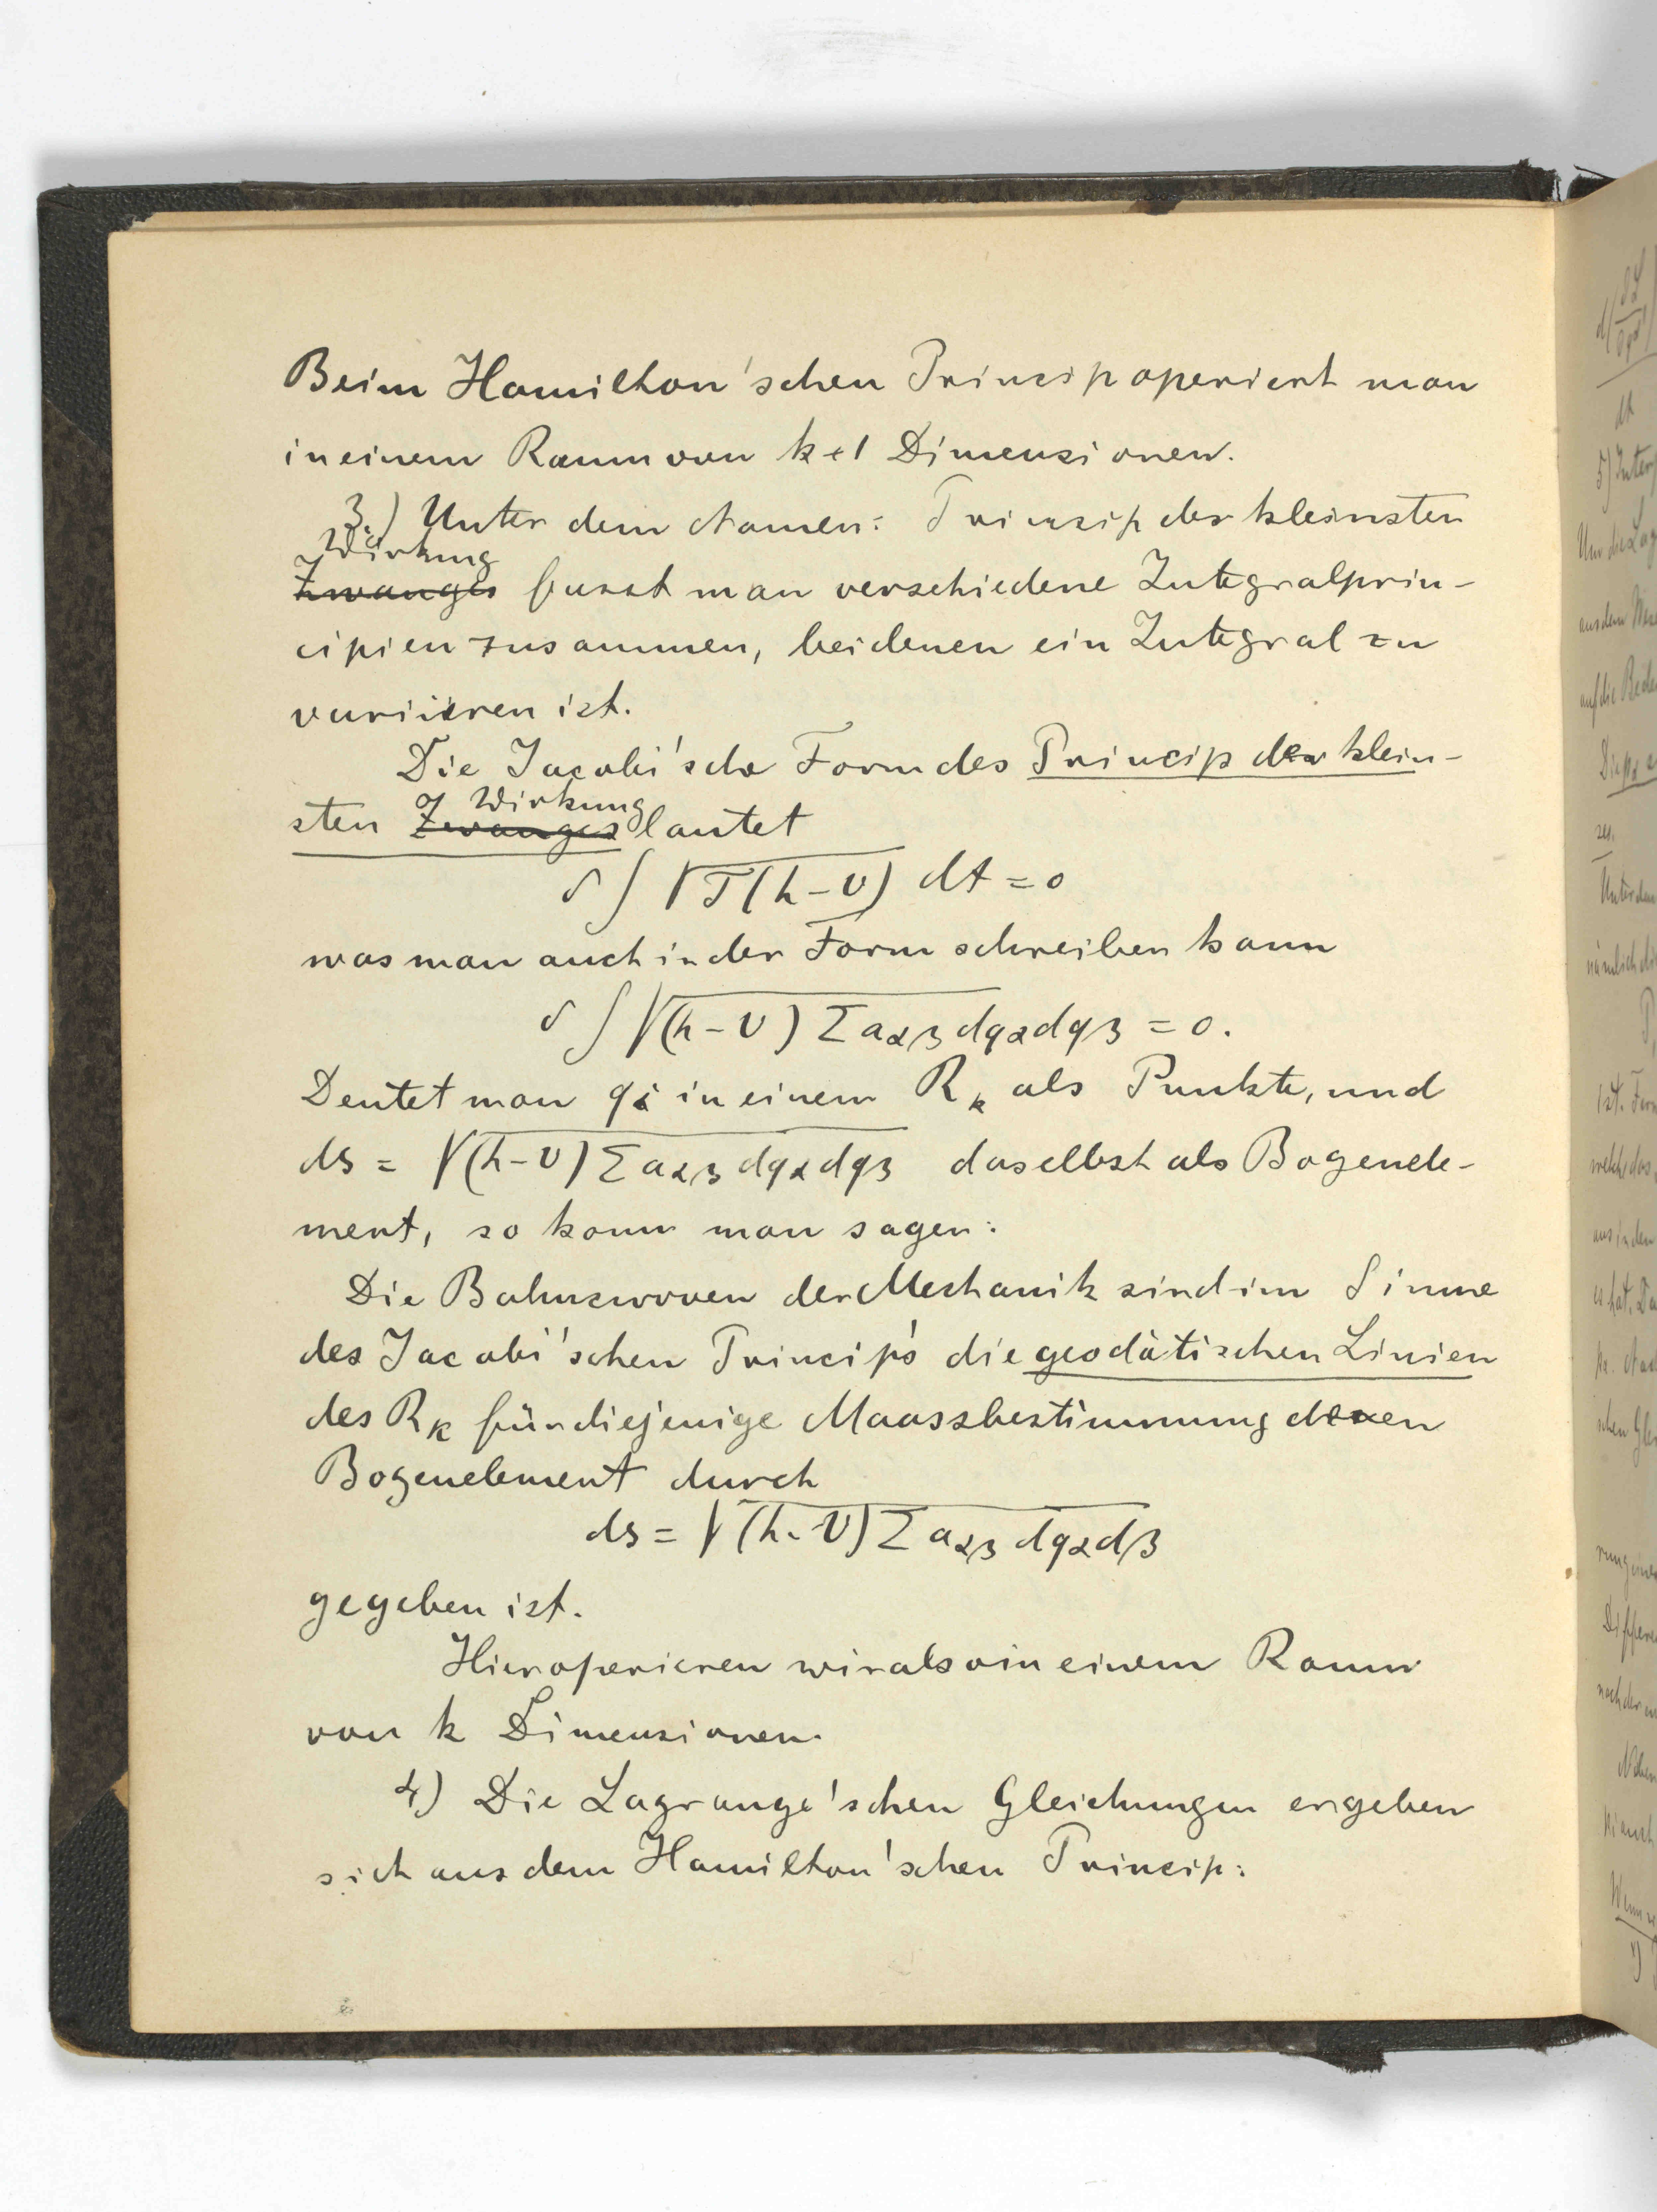 Beim Hamilton'schen Princip operiert man
in einem Raum von k+1 Dimensionen.
3.) Unter dem Namen: Princip der kleinsten
Wirkung
Zwanges fasst man verschiedene Integralprin-
cipien zusammen, bei denen ein Integral zu
variieren ist.
Die Jacobi'sche Form des Princip der klein-
sten Zwanges Wirkung lautet
δ ∫ √(T(h-U)) dt = 0
was man auch in der Form schreiben kann
δ ∫ √((h-U) Σ aαβ dqα dqβ) = 0.
Deutet man qi in einem Rk als Punkte, und
ds = √((h-U) Σ aαβ dqα dqβ) daselbst als Bogenele-
ment, so kann man sagen:
Die Bahncurven der Mechanik sind im Sinne
des Jacobi'schen Princip's die geodätischen Linien
des Rk für diejenige Maassbestimmung deren
Bogenelement durch
ds = √((h-U) Σ aαβ dqα dβ)
gegeben ist.
Hier operieren wir also in einem Raum
von k Dimensionen.
4) Die Lagrange'schen Gleichungen ergeben
sich aus dem Hamilton'schen Princip: